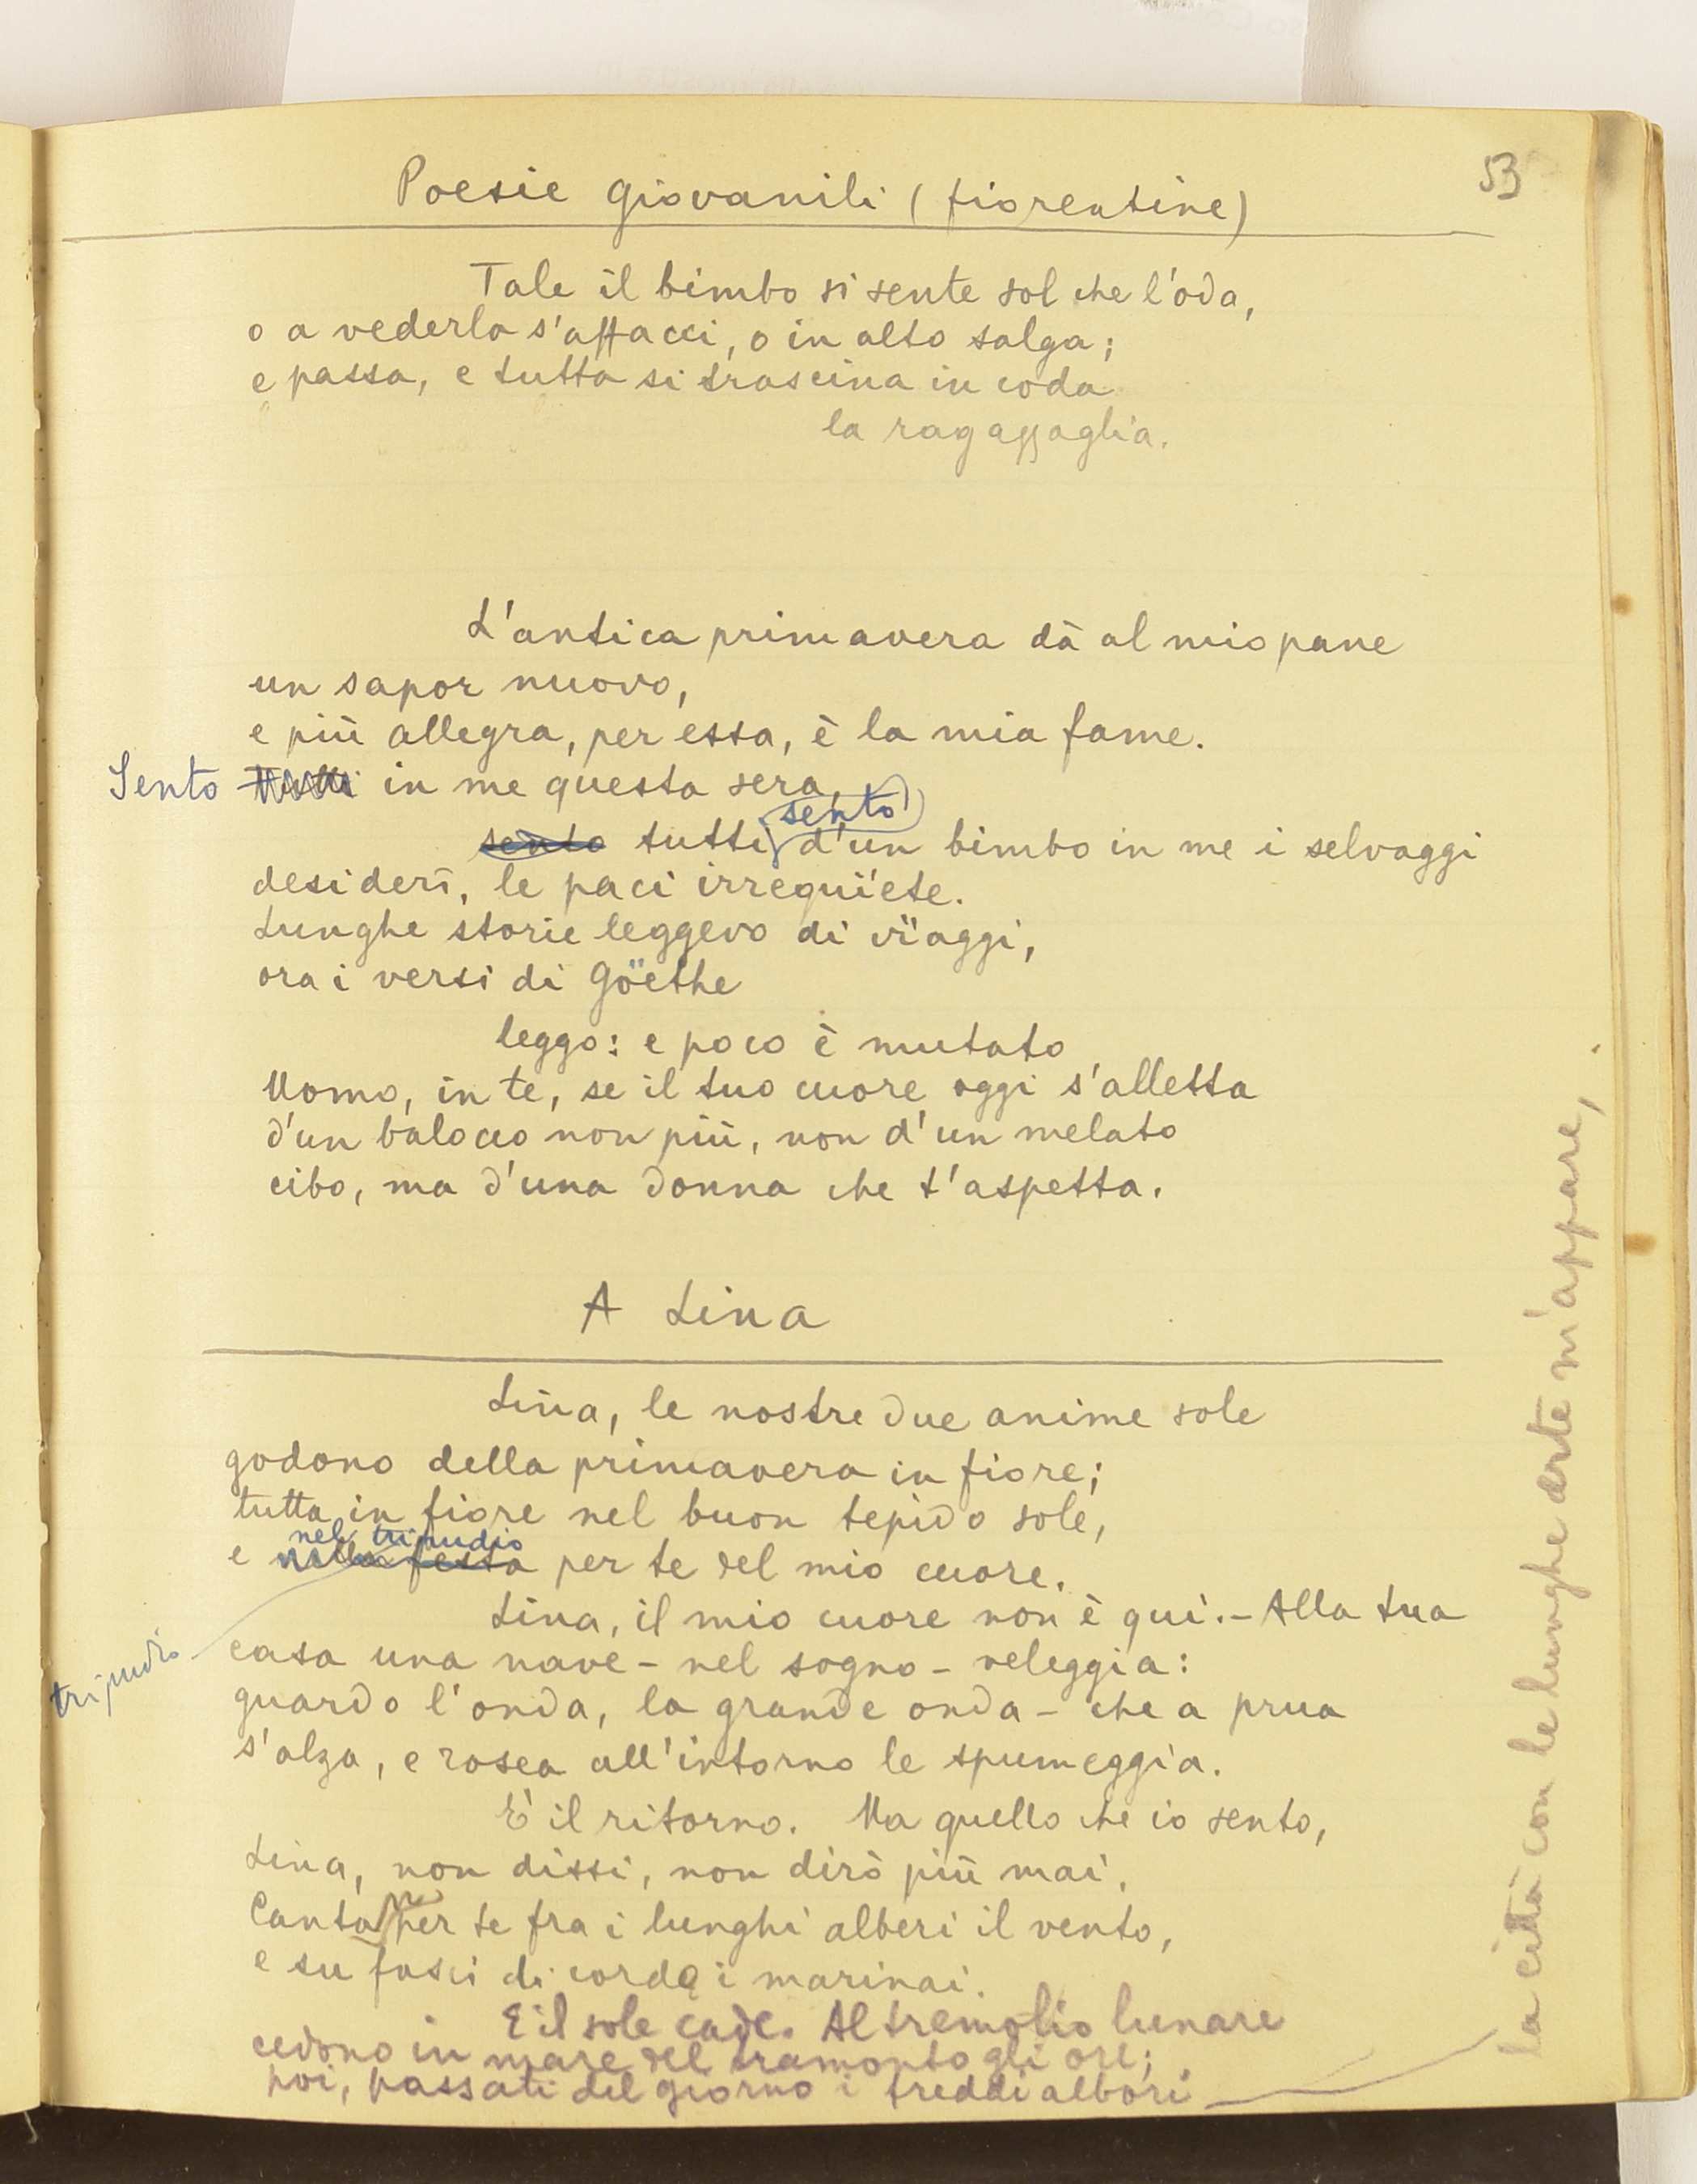 53
Poesie giovanili (fiorentine)
Tale il bimbo si sente sol che l'oda,
o a vederla s'affacci, o in alto salga;
e passa, e tutta si trascina in coda
la ragazzaglia.
L'antica primavera dà al mio pane
un sapor nuovo,
e più allegra, per essa, è la mia fame.
Sento Tutti in me questa sera,
sento
sento tutti d'un bimbo in me i selvaggi
desiderî, le paci irrequïete.
Lunghe storie leggevo di vïaggi,
ora i versi di Göethe
leggo: e poco è mutato
Uomo, in te, se il tuo cuore oggi s'alletta
d'un balocco non più, non d'un melato
cibo, ma d'una donna che t'aspetta.
A Lina
Lina, le nostre due anime sole
godono della primavera in fiore;
tutta in fiore nel buon tepido sole,
nel tripudio
e nella festa per te del mio cuore.
Lina, il mio cuore non è qui. - Alla tua
tripudio
casa una nave - nel sogno - veleggia:
guardo l'onda, la grande onda - che a prua
s'alza, e rosea all'intorno le spumeggia.
E' il ritorno. Ma quello che io sento,
Lina, non dissi, non dirò più mai.
Canta per te fra i lunghi alberi il vento,
e su fasci di corda i marinai.
E il sole cade. Al tremolio lunare
cedono in mare del tramonto gli ori;
poi, passati del giorno i freddi albori
la città con le lunghe erte m'appare,